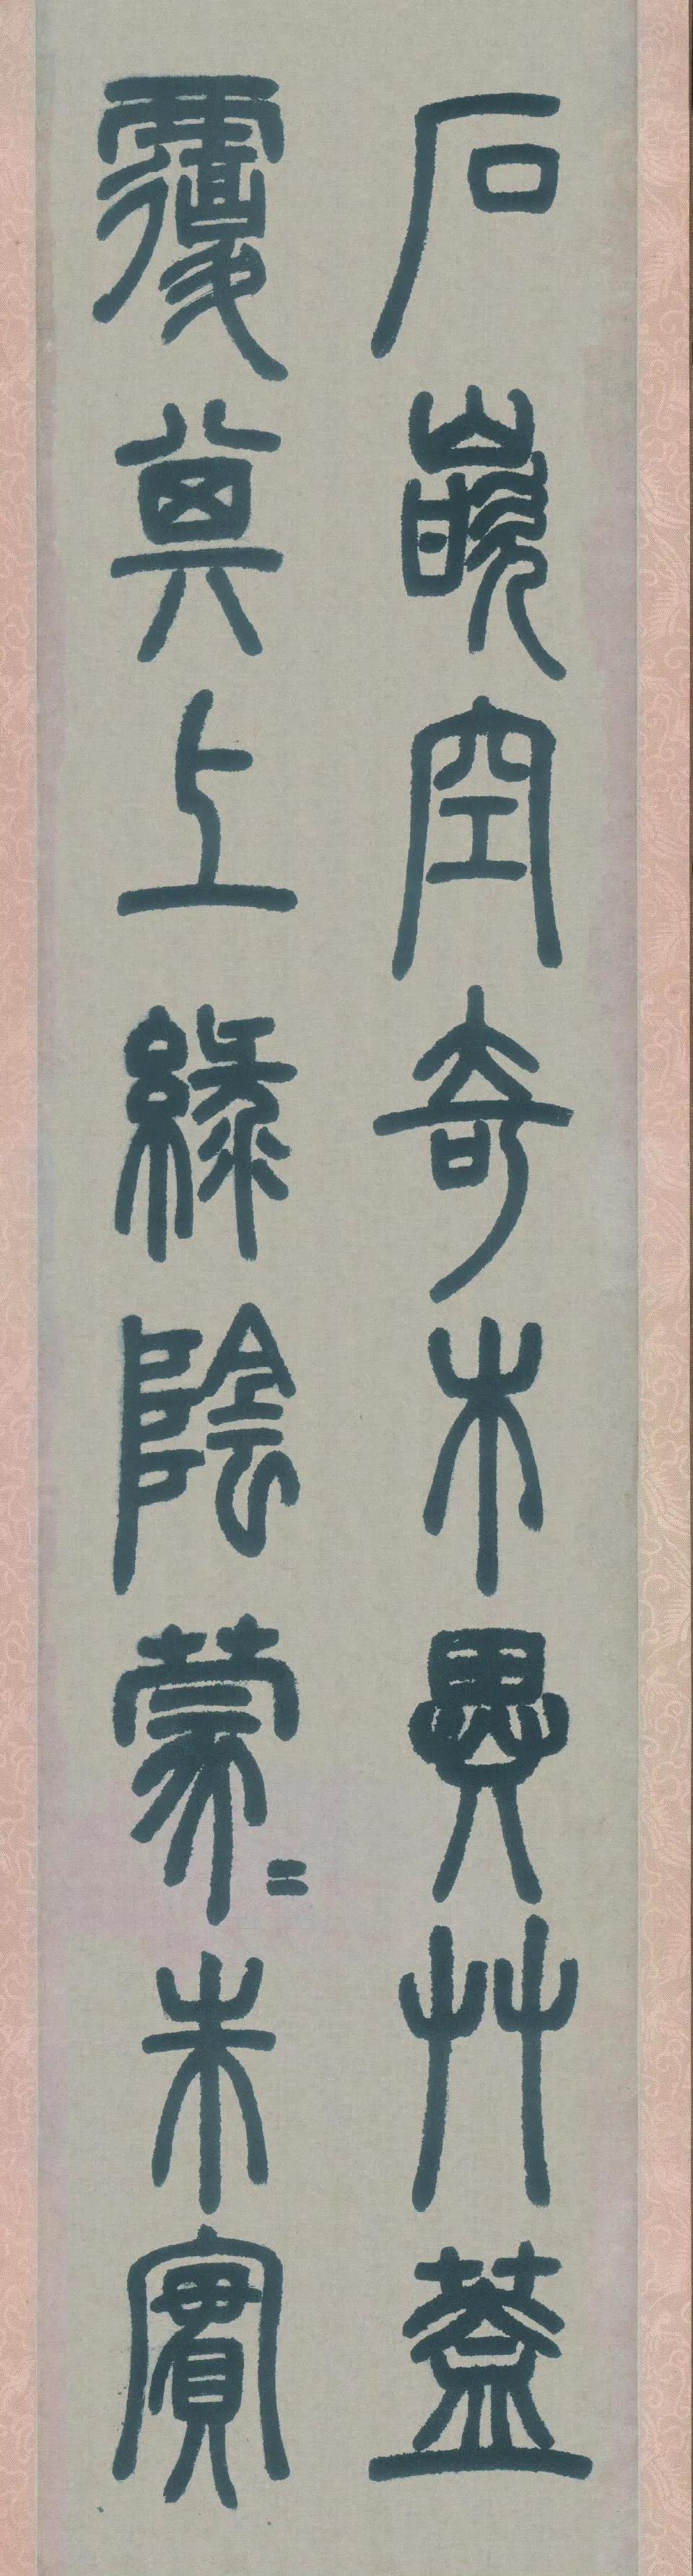 石嵌空奇木異艸蓋
覆其上綠陰蒙〻朱實